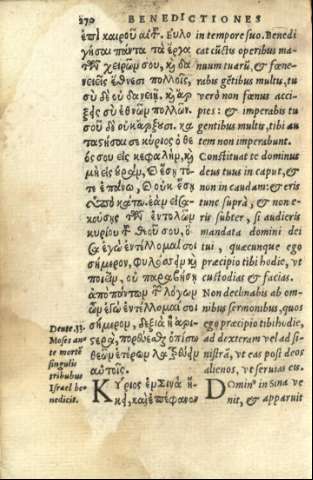 270 BENEDICTIONES
ἐπὶ καιροῦ αὐτ͂. εὐλο
γῆσαι πάντα τὰ ἔργα
τῶν χειρῶν σου, καὶ δα
νειεῖς ἔθνεσι πολλοῖς,
σὺ δὲ οὐ δανειῇ. καὶ ἄρ
ξῃς σὺ ἐθνῶν πολλῶν.
σοῦ δὲ οὐκ ἄρξουσι. κα
ταστήσαι σε κύριος ὁ θε
ός σου εἰς κεφαλὴν, καὶ
μὴ εἰς οὐρὰν, καὶ ἔσῃ τό
τε ἐπάνω, καὶ οὐκ ἔσῃ
ὑποκάτω. ἐὰν εἰσα-
κούσῃς τῶν ἐντολῶν
κυρίου τοῦ θεοῦ σου, ὅ-
σα ἐγὼ ἐντέλλομαί σοι
σήμερον, φυλάσσειν καὶ
ποιεῖν, οὐ παραβήσῃ
ἀπὸ πάντων τῶν λόγων
ὧν ἐγὼ ἐντέλλομαί σοι
σήμερον, δεξιὰ ἢ ἀρι-
στερὰ, πορεύεσθαι ὀπίσω
θεῶν ἑτέρων λατρεύειν
αὐτοῖς.
Κύριος ἐκ Σινᾶ ἥ-
κει, καὶ ἐπέφανεν
in tempore suo. Benedi
cat cūctis operibus ma-
nuum tuarū, & fœne-
rabis gētibus multis, tu
verò non fœnus acci-
pies: & imperabis tu
gentibus multis, tibi au
tem non imperabunt.
Constituat te dominus
deus tuus in caput, &
non in caudam: & eris
tunc suprà, & non e-
ris subter, si audieris
mandata domini dei
tui, quæcunque ego
præcipio tibi hodie, vt
custodias & facias.
Non declinabis ab om-
nibus sermonibus, quos
ego præcipio tibi hodie,
ad dexteram vel ad si-
nistrā, vt eas post deos
alienos, vt seruias eis.
Dominꝰ in Sina ve
nit, & apparuit
Deute.33.
Moses an-
te mortē
singulis
tribubus
Israel be-
nedicit.